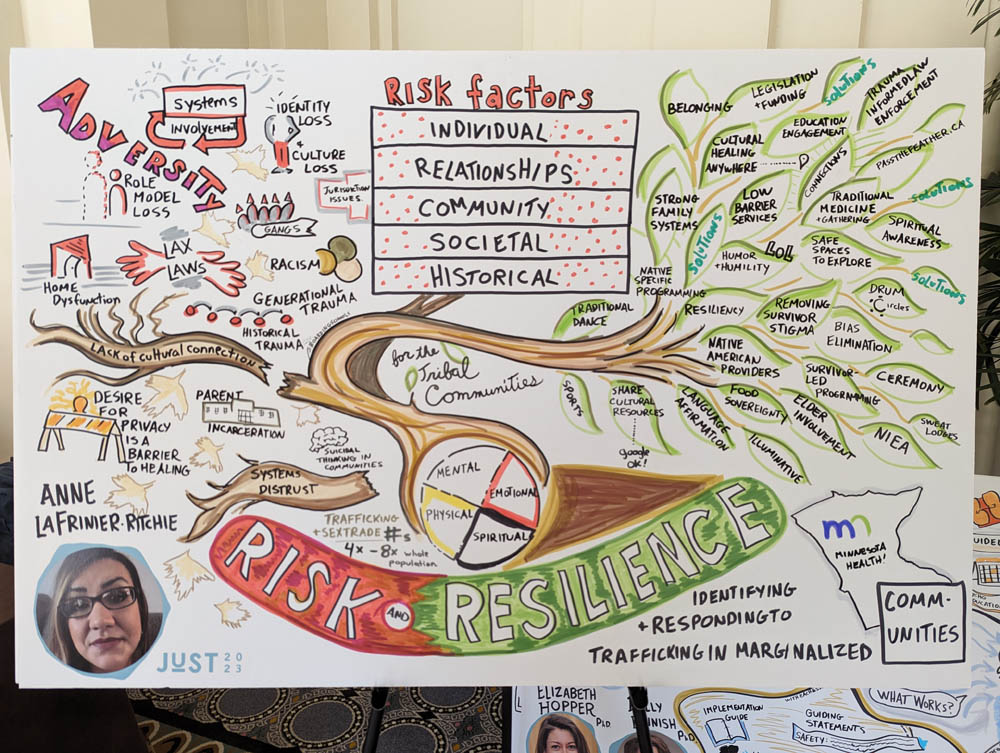 ADVERSITY
Systems
INVOLVEMENT
IDENTITY
LOSS
+
CULTURE
LOSS
ROLE
MODEL
LOSS
JURISDICTION
ISSUES.
GANGS
LAX
LAWS
RACISM
HOME
Dysfunction
GENERATIONAL
TRAUMA
HISTORICAL
TRAUMA
LACK of cultural connection
DESIRE
FOR
PRIVACY
IS A
BARRIER
TO HEALING
PARENT
INCARCERATION
SUICIDAL
THINKING IN
COMMUNITIES
SYSTEMS
DISTRUST
ANNE
LAFRINIER-RITCHIE
TRAFFICKING
+ SEX TRADE #s
4x - 8x whole
population
JUST 2023
RISK factors
INDIVIDUAL
RELATIONSHIPS
COMMUNITY
SOCIETAL
HISTORICAL
for the
Tribal
Communities
MENTAL
EMOTIONAL
PHYSICAL
SPIRITUAL
RISK AND RESILIENCE
IDENTIFYING
+ RESPONDING TO
TRAFFICKING IN MARGINALIZED
COMM-
UNITIES
BELONGING
LEGISLATION
+ FUNDING
SOLUTIONS
TRAUMA
INFORMED LAW
ENFORCEMENT
CULTURAL
HEALING
ANYWHERE
EDUCATION
ENGAGEMENT
CONNECTIONS
PASSTHEFEATHER.CA
STRONG
FAMILY
SYSTEMS
LOW
BARRIER
SERVICES
TRADITIONAL
MEDICINE
+ GATHERING
SOLUTIONS
SPIRITUAL
AWARENESS
SOLUTIONS
HUMOR
+ HUMILITY
LOL
SAFE
SPACES
TO EXPLORE
SOLUTIONS
NATIVE
SPECIFIC
PROGRAMMING
RESILIENCY
REMOVING
SURVIVOR
STIGMA
DRUM
Circles
BIAS
ELIMINATION
TRADITIONAL
DANCE
NATIVE
AMERICAN
PROVIDERS
SURVIVOR-
LED
PROGRAMMING
CEREMONY
SPORTS
SHARE
CULTURAL
RESOURCES
google
ok!
LANGUAGE
AFFIRMATION
FOOD
SOVEREIGNTY
ILLUMINATIVE
ELDER
INVOLVEMENT
NIEA
SWEAT
LODGES
mn
MINNESOTA
HEALTH!
ELIZABETH
HOPPER
Ph.D
IMPLEMENTATION
GUIDE
GUIDING
STATEMENTS
SAFETY:
WHAT WORKS?